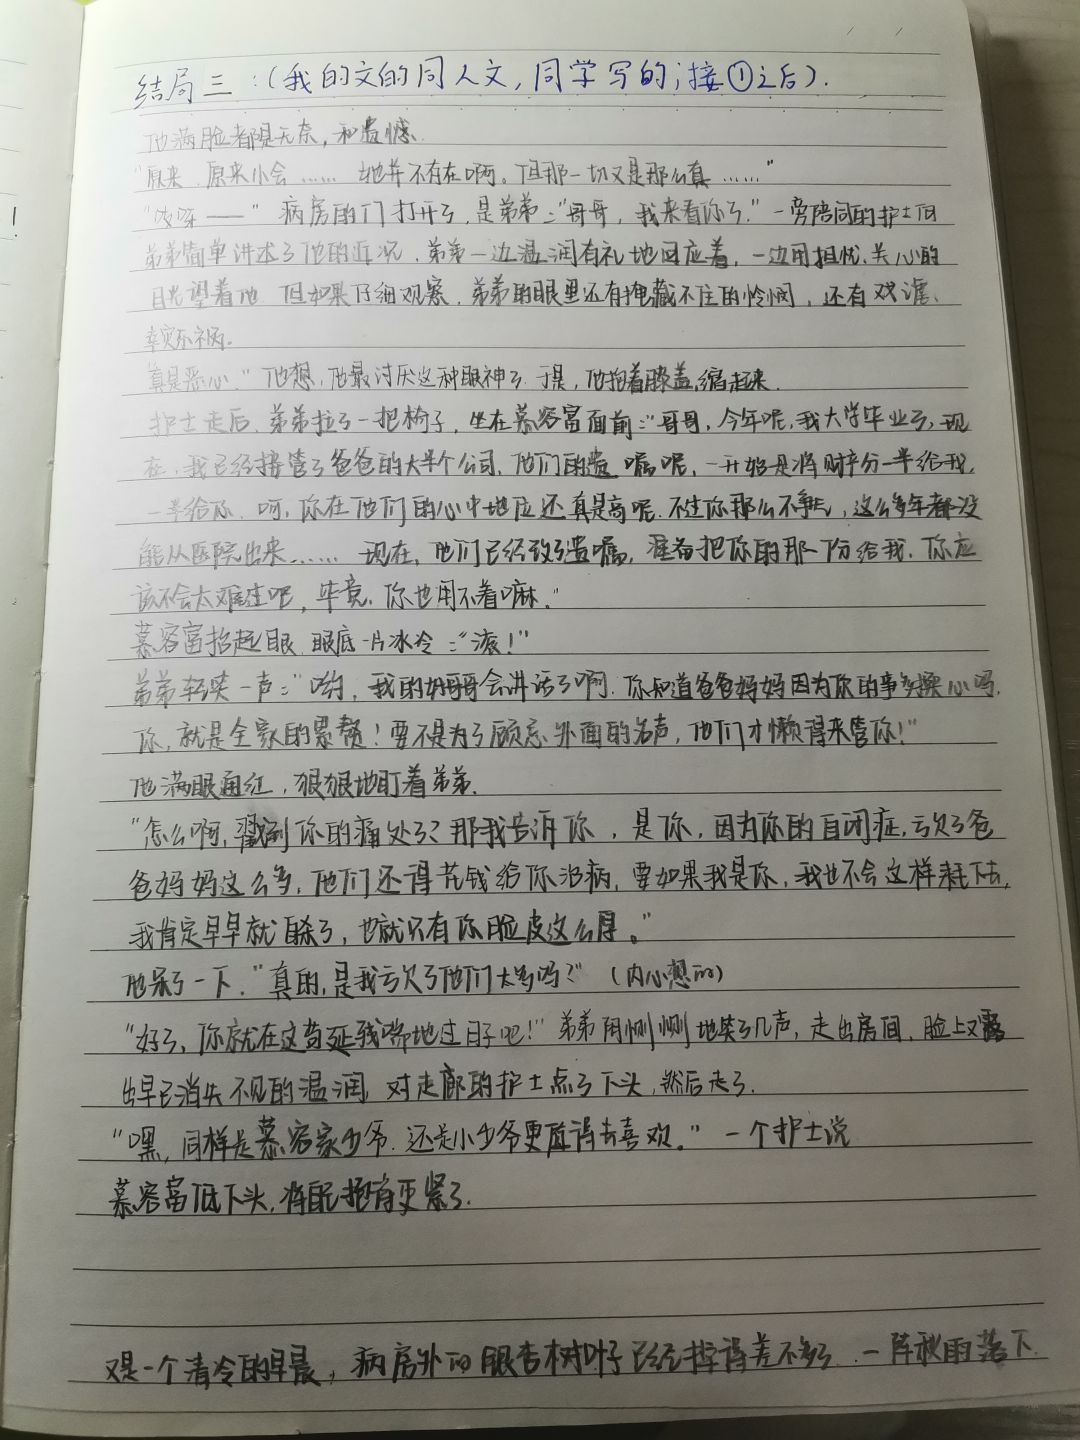 结局三:(我的文的同人文,同学写的;接①之后).
他满脸都是无奈,和遗憾.
"原来,原来小会…… 她并不存在啊。但那一切又是那么真……"
"吱呀——" 病房的门打开了,是弟弟:"哥哥,我来看你了."一旁陪同的护士向
弟弟简单讲述了他的近况,弟弟一边温润有礼地回应着,一边用担忧、关心的
目光望着他 但如果仔细观察,弟弟的眼里还有掩藏不住的怜悯,还有戏谑、
幸灾乐祸。
真是恶心."他想,他最讨厌这种眼神了.于是,他抱着膝盖,缩起来.
护士走后,弟弟拉了一把椅子,坐在慕容富面前:"哥哥,今年呢,我大学毕业了,现
在,我已经接管了爸爸的大半个公司,他们的遗嘱呢,一开始是将财产分一半给我,
一半给你.呵,你在他们的心中地位还真是高呢.不过你那么不争气,这么多年都没
能从医院出来…… 现在,他们已经改了遗嘱,准备把你的那一份给我.你应
该不会太难过吧,毕竟,你也用不着嘛."
慕容富抬起眼,眼底一片冰冷:"滚!"
弟弟轻笑一声:"哟,我的好哥哥会讲话了啊.你知道爸爸妈妈因为你的事多操心吗.
你,就是全家的累赘!要不是为了顾忌外面的名声,他们才懒得来管你!"
他满眼通红,狠狠地盯着弟弟.
"怎么啊,戳到你的痛处了?那我告诉你,是你,因为你的自闭症,亏欠了爸
爸妈妈这么多,他们还得花钱给你治病,要如果我是你,我也不会这样耗下去,
我肯定早早就自杀了,也就只有你脸皮这么厚。"
他呆了一下."真的,是我亏欠了他们太多吗?"(内心想的)
"好了,你就在这苟延残喘地过日子吧!"弟弟阴恻恻地笑了几声,走出房间,脸上又露
出早已消失不见的温润,对走廊的护士点了下头,然后走了.
"嘿,同样是慕容家少爷.还是小少爷更值得去喜欢."一个护士说
慕容富低下头,将 抱得更紧了.
又是一个清冷的早晨,病房外的银杏树叶子已经掉得差不多了.一阵秋雨落下.